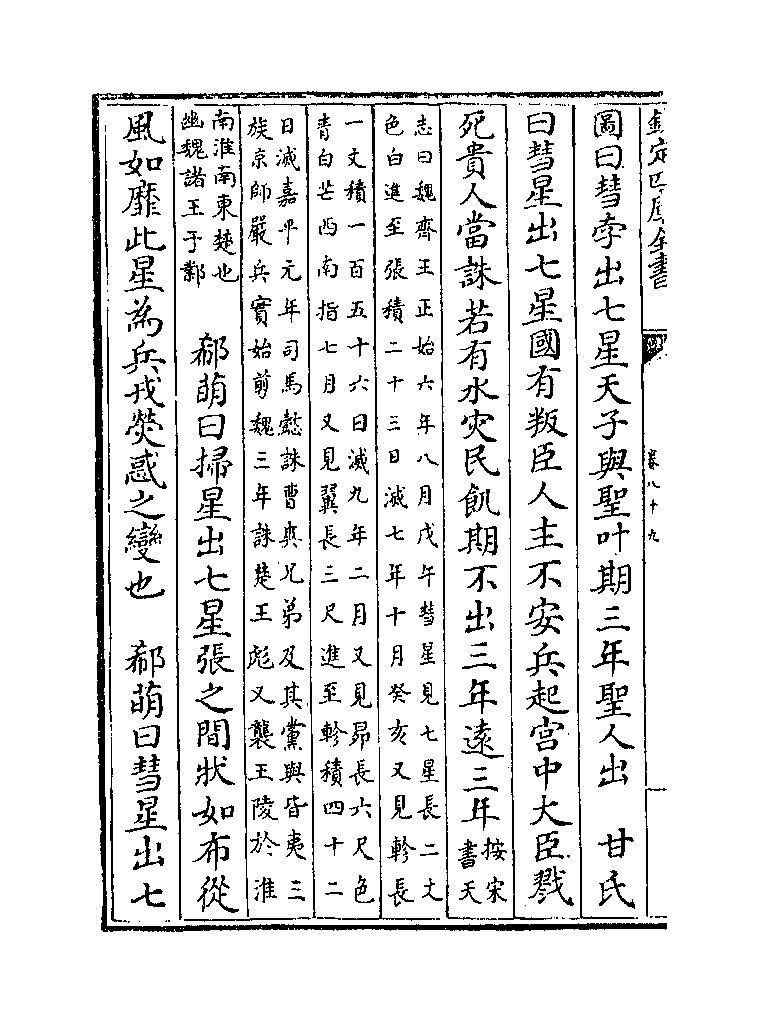 欽定四庫全書　卷八十九
圖曰彗孛出七星天子與聖叶期三年聖人出　甘氏
曰彗星出七星國有叛臣人主不安兵起宮中大臣戮
死貴人當誅若有水灾民飢期不出三年遠三年按宋
書天
志曰魏齊王正始六年八月戊午彗星見七星長二丈
色白進至張積二十三日滅七年十月癸亥又見軫長
一丈積一百五十六日滅九年二月又見昴長六尺色
青白芒西南指七月又見翼長三尺進至軫積四十二
日滅嘉平元年司馬懿誅曹爽兄弟及其黨與皆夷三
族京師嚴兵實始剪魏三年誅楚王彪又襲王陵於淮
南淮南東楚也
幽魏諸王于鄴
郗萌曰掃星出七星張之間狀如布從
風如靡此星為兵戎熒惑之變也　郗萌曰彗星出七